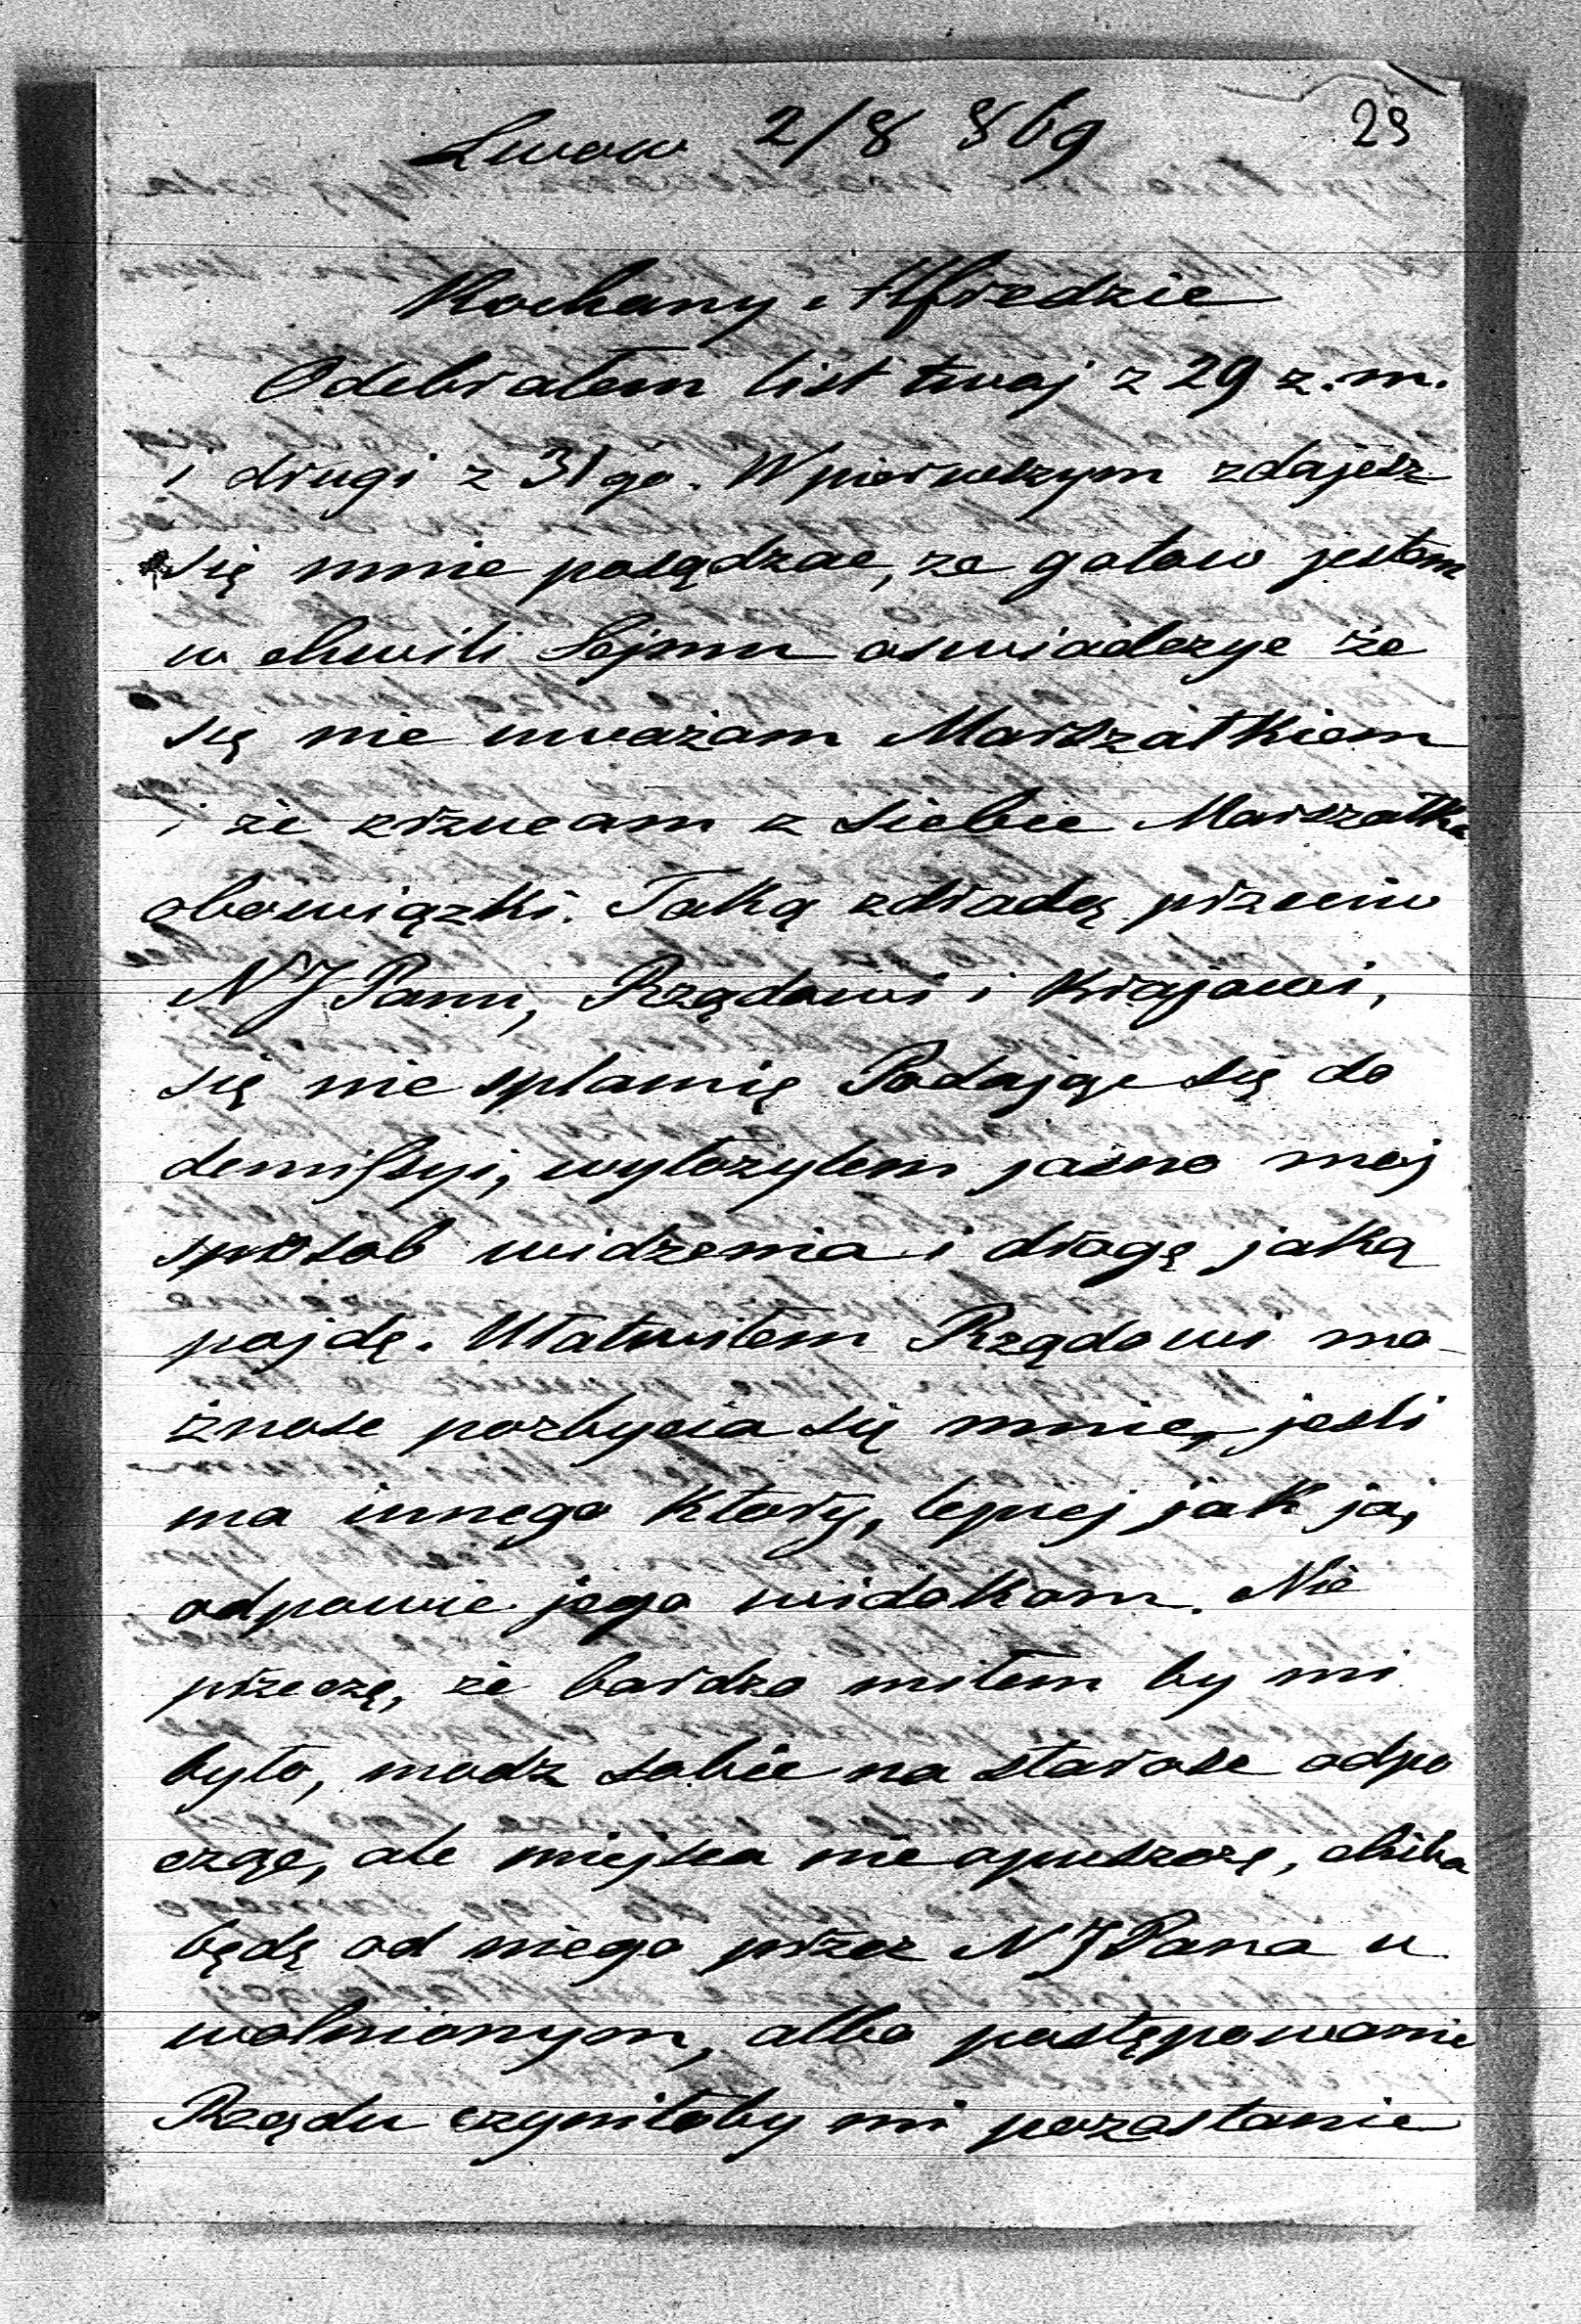 29
Lwow 2/8 869
Kochany Alfredzie
Odebrałem list twoj z 29 z. m.
i drugi z 31go. W pierwszym zdajesz
się mnie posądzac, ze gotow jestem
w chwili Sejmu oswiadczyc że
się nie uważam Marszałkiem
i że zrzucam z siebie Marszałka
obowiązki. Taką zdradą przeciw
NJPanu, Rządowi i Krajowi,
się nie splamię Podając się do
demissyi, wyłozyłem jasno moj
sposob widzenia i drogę jaką
pojdę. Ułatwiłem Rządowi mo-
żnosc pozbycia się mnie, jesli
ma innego ktory, lepiej jak ja,
odpowie jego widokom. Nie
przeczę, że bardzo miłem by mi
było, modz sobie na starosc odpo
cząc, ale miejsca nie opuszczę, chiba
będę od niego przez NJPana u
wolnionym, albo postępowanie
Rządu czyniłoby mi pozostanie